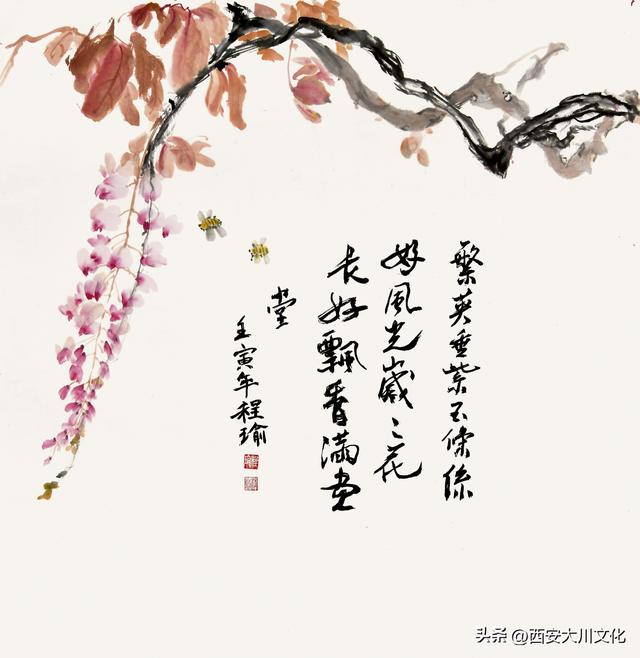 繁英垂紫玉條係
好風光歲〻花
長好飄香滿畫
堂
壬寅年程瑜
头条 @西安大川文化